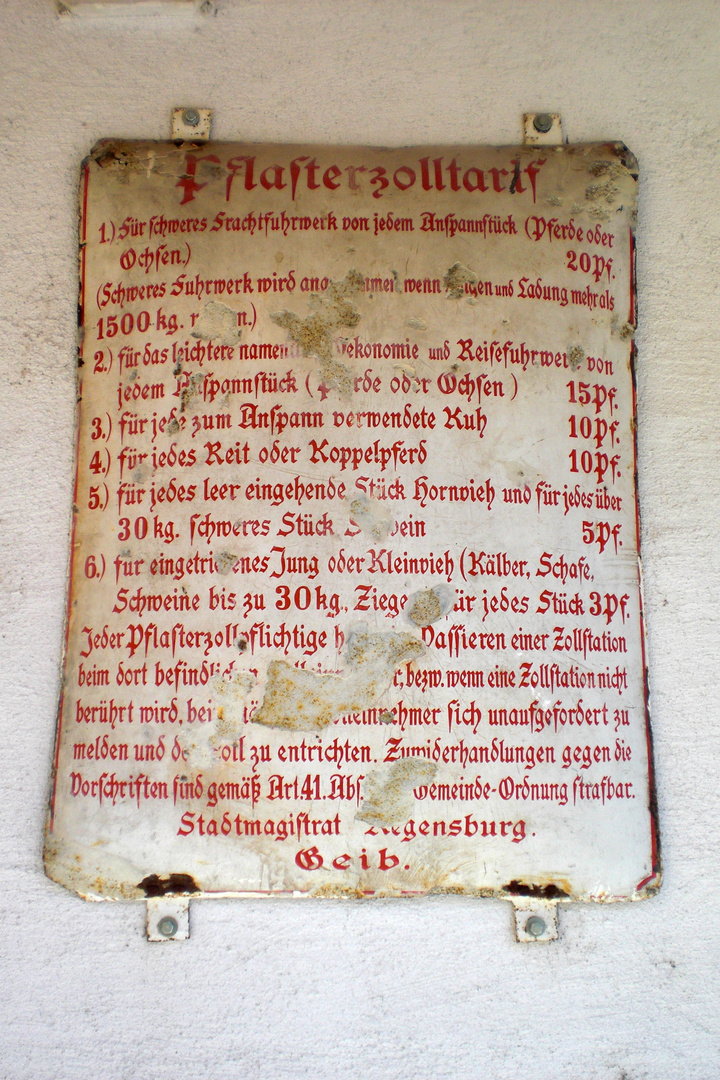 Pflasterzolltarif
1.) Für schweres Frachtfuhrwerk von jedem Anspannstück (Pferde oder
Ochsen.) 20 Pf.
(Schweres Fuhrwerk wird wenn und Ladung mehr als
1500 kg.
2.) für das leichtere Oekonomie und Reisefuhrwerk von
jedem Anspannstück (Pferde oder Ochsen) 15 Pf.
3.) für jede zum Anspann verwendete Kuh 10 Pf.
4.) für jedes Reit oder Koppelpferd 10 Pf.
5.) für jedes leer eingehende Stück Hornvieh und für jedes über
30 kg. schweres Stück Schwein 5 Pf.
6.) fur eingetriebenes Jung oder Kleinvieh (Kälber, Schafe,
Schweine bis zu 30 kg., Ziegen für jedes Stück 3 Pf.
Jeder Pflasterzollpflichtige Passieren einer Zollstation
beim dort befindlichen bezw. wenn eine Zollstation nicht
berührt wird, sich unaufgefordert zu
melden und den Zoll zu entrichten. Zuwiderhandlungen gegen die
Vorschriften sind gemäß Art 41. Abs. Gemeinde-Ordnung strafbar.
Stadtmagistrat Regensburg.
Geib.